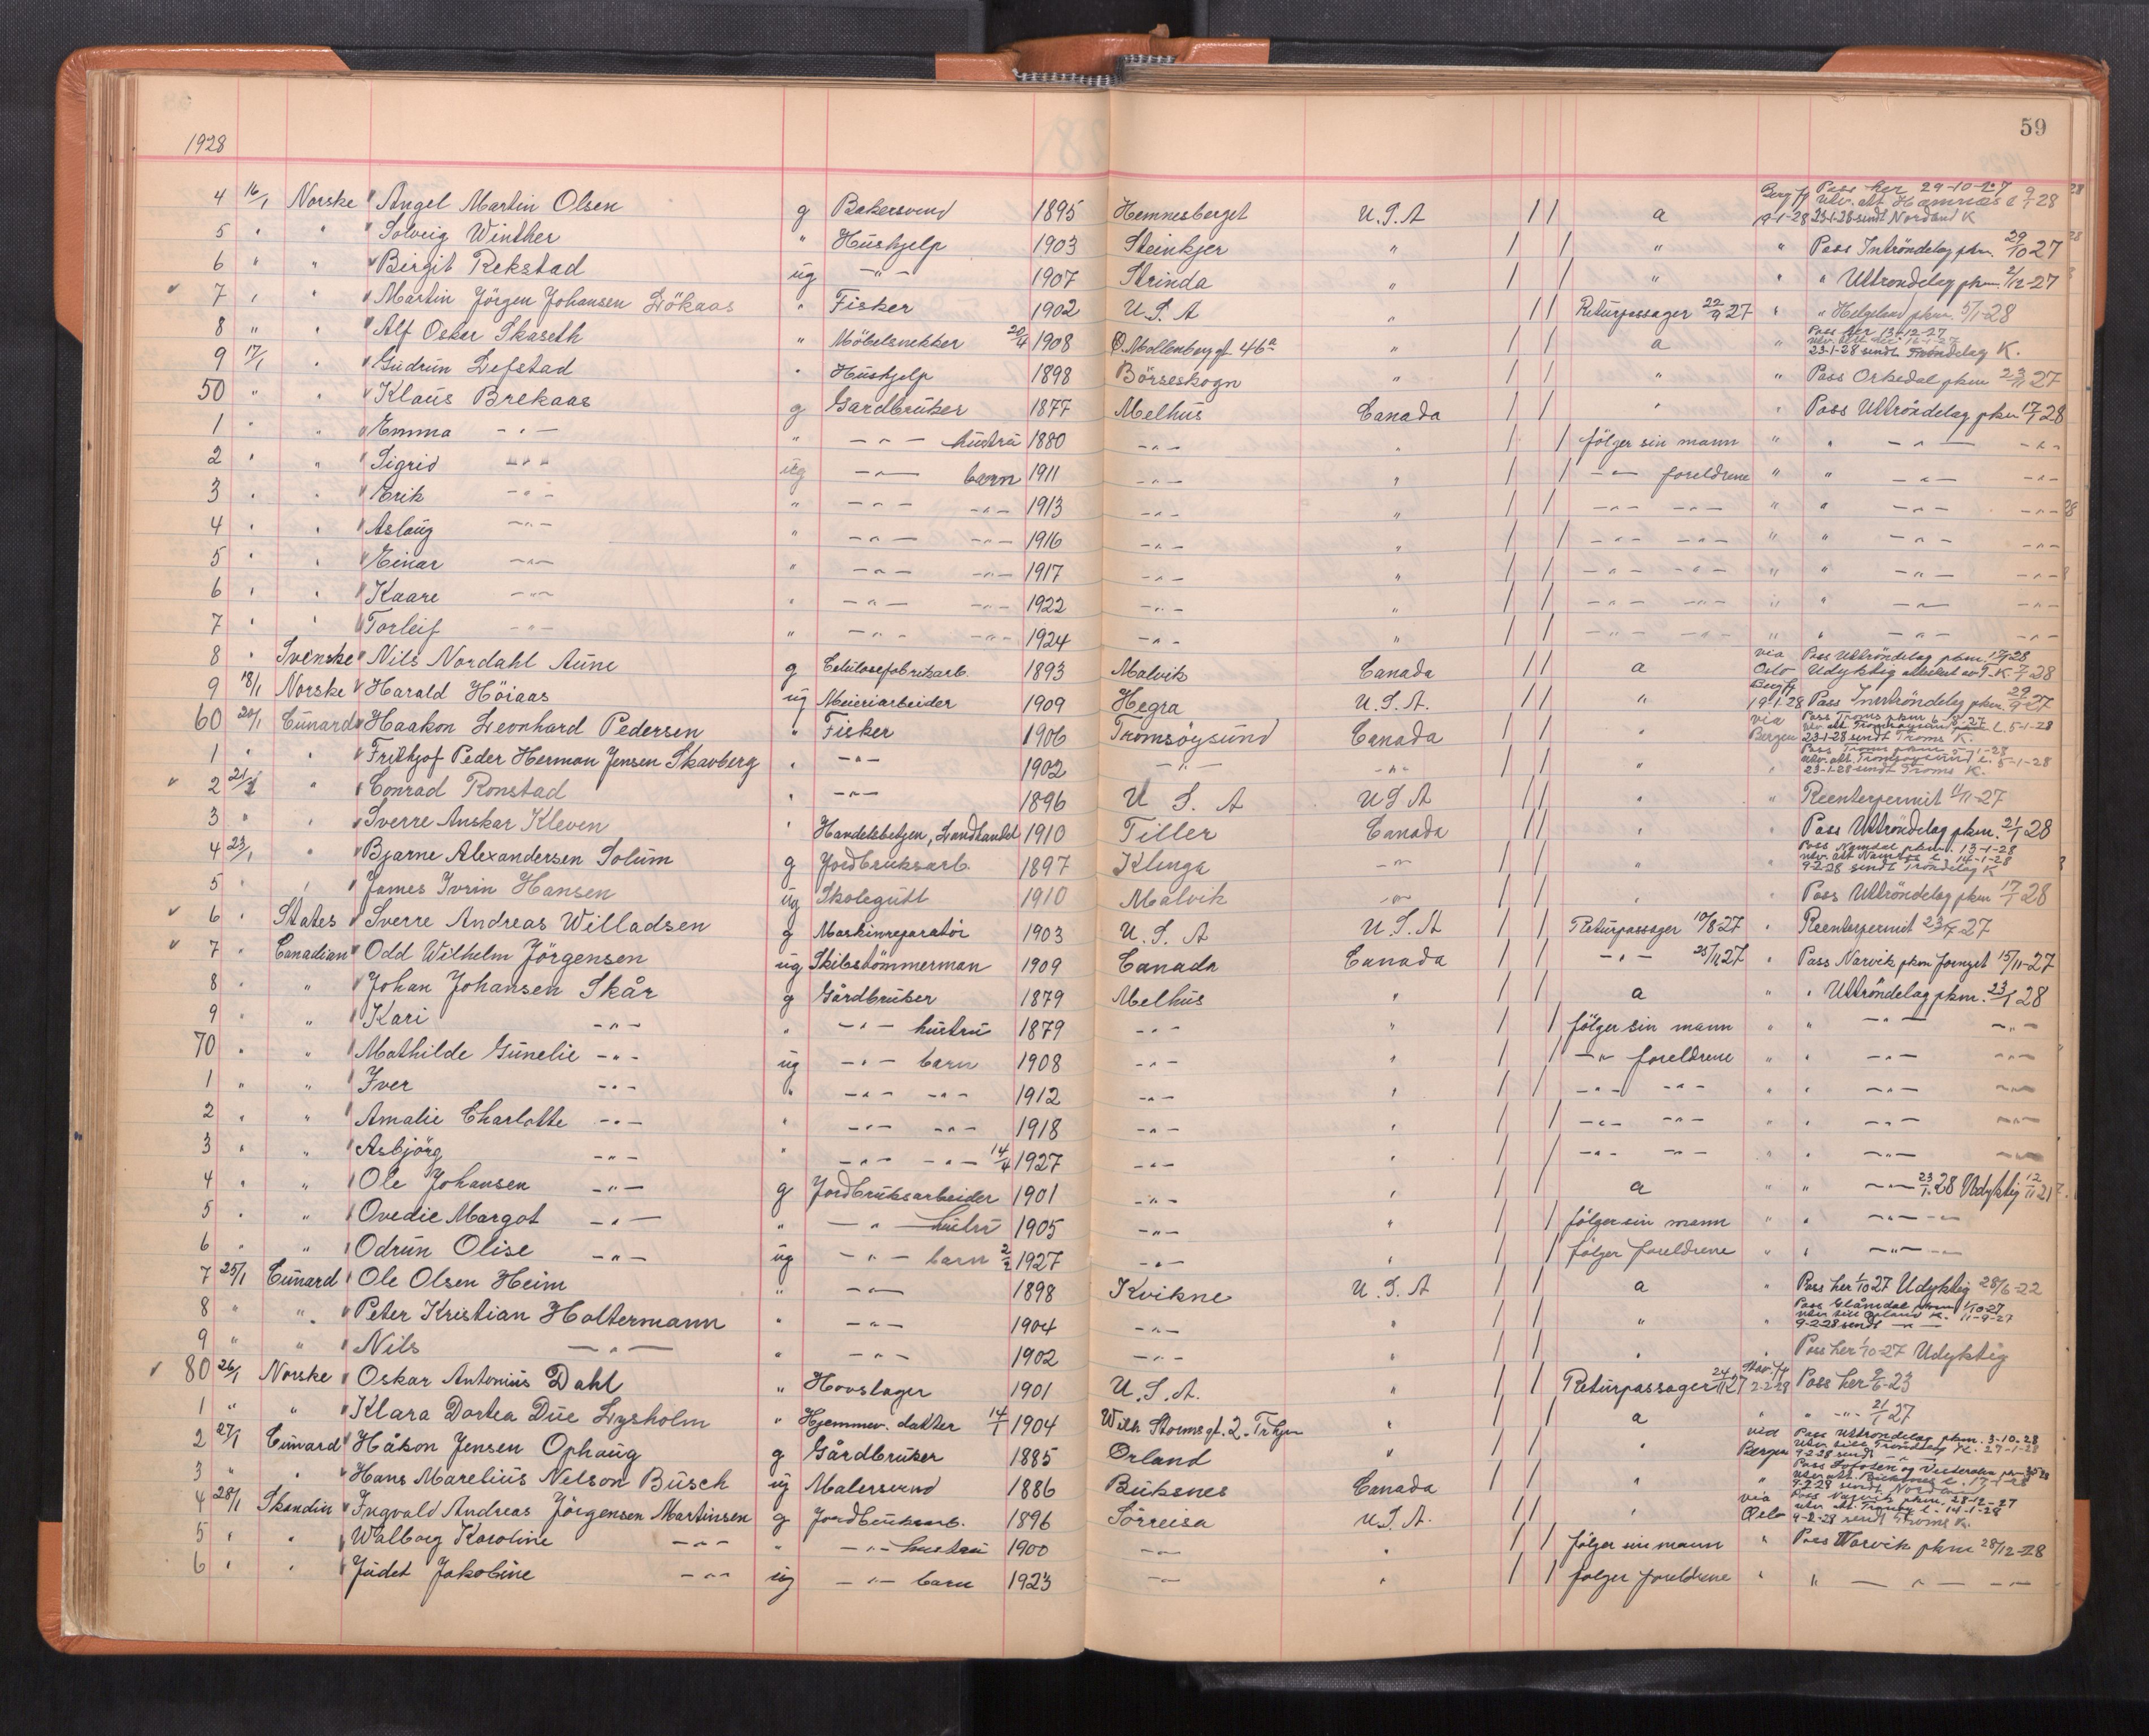 1928
59
4 16/1 Norske Angel Martin Olsen g Bakersvend 1895 Hemnesberget U.S.A / / a Berg ff 19-1-28 Pass her 29-10-27 utv. att Hemnæs 23-1-28 sendt Nordland K
5 " " Solveig Winther " Hushjelp 1903 Steinkjer " / / " " Pass Intröndelag pkm. 29/10 27
6 " " Birgit Rekstad ug -"- 1907 Strinda " / / " " " Uttrondelag pkm. 2/12-27
7 " " Martin Jörgen Johansen Lökaas " Fisker 1902 U.S.A " / / Returpassager 22/9 27 " " Helgeland pkm. 5/1-28
8 " " Alf Oskar Skaseth " Möbelsnekker 20/4 1908 Ö. Mollenberg gt. 46a " / / a " Pass her 13-12-27 23-1-28 sendt Tröndelag K.
9 17/1 " Gudrun Lefstad " Hushjelp 1898 Börseskogn " / / " " Pass Orkedal pkm 23/11 27
50 " " Klaus Brekaas g Gardbruker 1877 Melhus Canada / / " " Pass Uttröndelag pkm 17/1 28
1 " " Emma -"- " -"- hustru 1880 -"- " / / fölger sin mann " " -"- -"-
2 " " Sigrid -"- ug -"- barn 1911 -"- " / / -"- foreldrene " " -"- -"-
3 " " Erik -"- " -"- -"- 1913 -"- " / / -"- -"- " " -"- -"-
4 " " Aslaug -"- " -"- -"- 1916 -"- " / / -"- -"- " " -"- -"-
5 " " Einar -"- " -"- -"- 1917 -"- " / / -"- -"- " " -"- -"-
6 " " Kaare -"- " -"- -"- 1922 -"- " / / -"- -"- " " -"- -"-
7 " " Torleif -"- " -"- -"- 1924 -"- " / / -"- -"- " " -"- -"-
8 " Svenske Nils Nordahl Aune g Celulosefabrikarb. 1893 Malvik Canada / / a via Oslo Pass Uttröndelag pkm. 17/1-28 Udyktig
9 18/1 Norske Harald Höiaas ug Meieriarbeider 1909 Hegra U.S.A. / / " Berg ff 19-1-28 Pass Inntröndelag pkm. 29/9-27
60 20/1 Cunard Haakon Leonhard Pedersen " Fisker 1906 Tromsöysund Canada / / " via Bergen Pass Troms pkm 5-1-28 23-1-28 sendt Troms K.
1 " " Frithjof Peder Herman Jensen Skavberg " -"- 1902 -"- -"- / / " " Pass Troms pkm 5-1-28 utv. att Tromsöysund l. 5-1-28 23-1-28 sendt Troms K.
2 21/1 " Conrad Ronstad " -"- 1896 U.S.A USA / / " " Reenterpermit 1/11-27
3 " " Sverre Anskar Kleven " Handelsbetjen, Landhandel 1910 Tiller Canada / / " " Pass Uttröndelag pkm. 21/1 28
4 23/1 " Bjarne Alexandersen Solum g Jordbruksarb. 1897 Klinga -"- / / " " Pass Namdal pkm. 13-1-28 utv. att Namsos l. 14-1-28 9-2-28 sendt Tröndelag K
5 " " James Ivrin Hansen ug Skolegutt 1910 Malvik -"- / / " " Pass Uttröndelag pkm 17/1 28
6 " States Sverre Andreas Willadsen g Maskinreparatör 1903 U.S.A U.S.A / / Returpassager 10/8 27 " Reenterpermit 23/7-27
7 " Canadian Odd Wilhelm Jörgensen ug Skibstömmerman 1909 Canada Canada / / -"- 25/11 27 " Pass Narvik pkm fornyet 15/11-27
8 " " Johan Johansen Skår g Gårdbruker 1879 Melhus " / / a " " Uttröndelag pkm. 23/1 28
9 " " Kari -"- " -"- hustru 1879 -"- " / / fölger sin mann " " -"- -"-
70 " " Mathilde Gunelie -"- ug -"- barn 1908 -"- " / / -"- foreldrene " " -"- -"-
1 " " Iver -"- " -"- -"- 1912 -"- " / / -"- -"- " " -"- -"-
2 " " Amalie Charlotte -"- " -"- -"- 1918 -"- " / / -"- -"- " " -"- -"-
3 " " Asbjörg -"- " -"- -"- 14/4 1927 -"- " / / -"- -"- " " -"- -"-
4 " " Ole Johansen -"- g Jordbruksarbeider 1901 -"- " / / a " " -"- 23/1-28 Udyktig 12/11 21
5 " " Ovedie Margot -"- " -"- hustru 1905 -"- " / / fölger sin mann " " -"- -"-
6 " " Odrun Olise -"- ug -"- barn 2/2 1927 -"- " / / fölger foreldrene " " -"- -"-
7 25/1 Cunard Ole Olsen Heim " -"- 1898 Kvikne U.S.A / / a " Pass her 1/10 27 Udyktig 28/6-22
8 " " Peter Kristian Holtermann " -"- 1904 -"- " / / " " Pass Glåmdal pkm 1/10-27 9-2-28 sendt -"-
9 " " Nils -"- " -"- 1902 -"- " / / " " Pass her 1/10-27 Udyktig
80 26/1 Norske Oskar Antonius Dahl " Hovslager 1901 U.S.A. " / / Returpassager 24/11 27 Stav. ff 2-2-28 Pass her 9/6-23
1 " " Klara Dortea Due Lysholm " Hjemmev. datter 14/1 1904 Wilh. Storms gt. 2. Trhjm " / / a " " -"- 21/1 27
2 27/1 Cunard Håkon Jensen Ophaug g Gårdbruker 1885 Örland " / / " via Bergen Pass Uttröndelag pkm. 3-10-28 utv. Tröndelag K. 27-1-28 9-2-28 sendt
3 " " Hans Marelius Nelson Busch ug Malersvend 1886 Buksnes Canada / / " " Pass Lofoten og Vesterålen utv. att. Buksnes l. 17-1-28 9-2-28 sendt Nordland
4 28/1 Skandin Ingvald Andreas Jörgensen Martinsen g Jordbruksarb. 1896 Sörreisa U.S.A. / / " via Oslo Pass Narvik pkm. 28-12-27 utv. att. Tranöy l. 14-1-28 9-2-28 sendt Troms K.
5 " " Walborg Karoline -"- " -"- hustru 1900 -"- " / / fölger sin mann " Pass Narvik pkm 28/12-28
6 " " Judet Jakobine -"- ug -"- barn 1923 -"- " / / fölger foreldrene " " -"- -"-